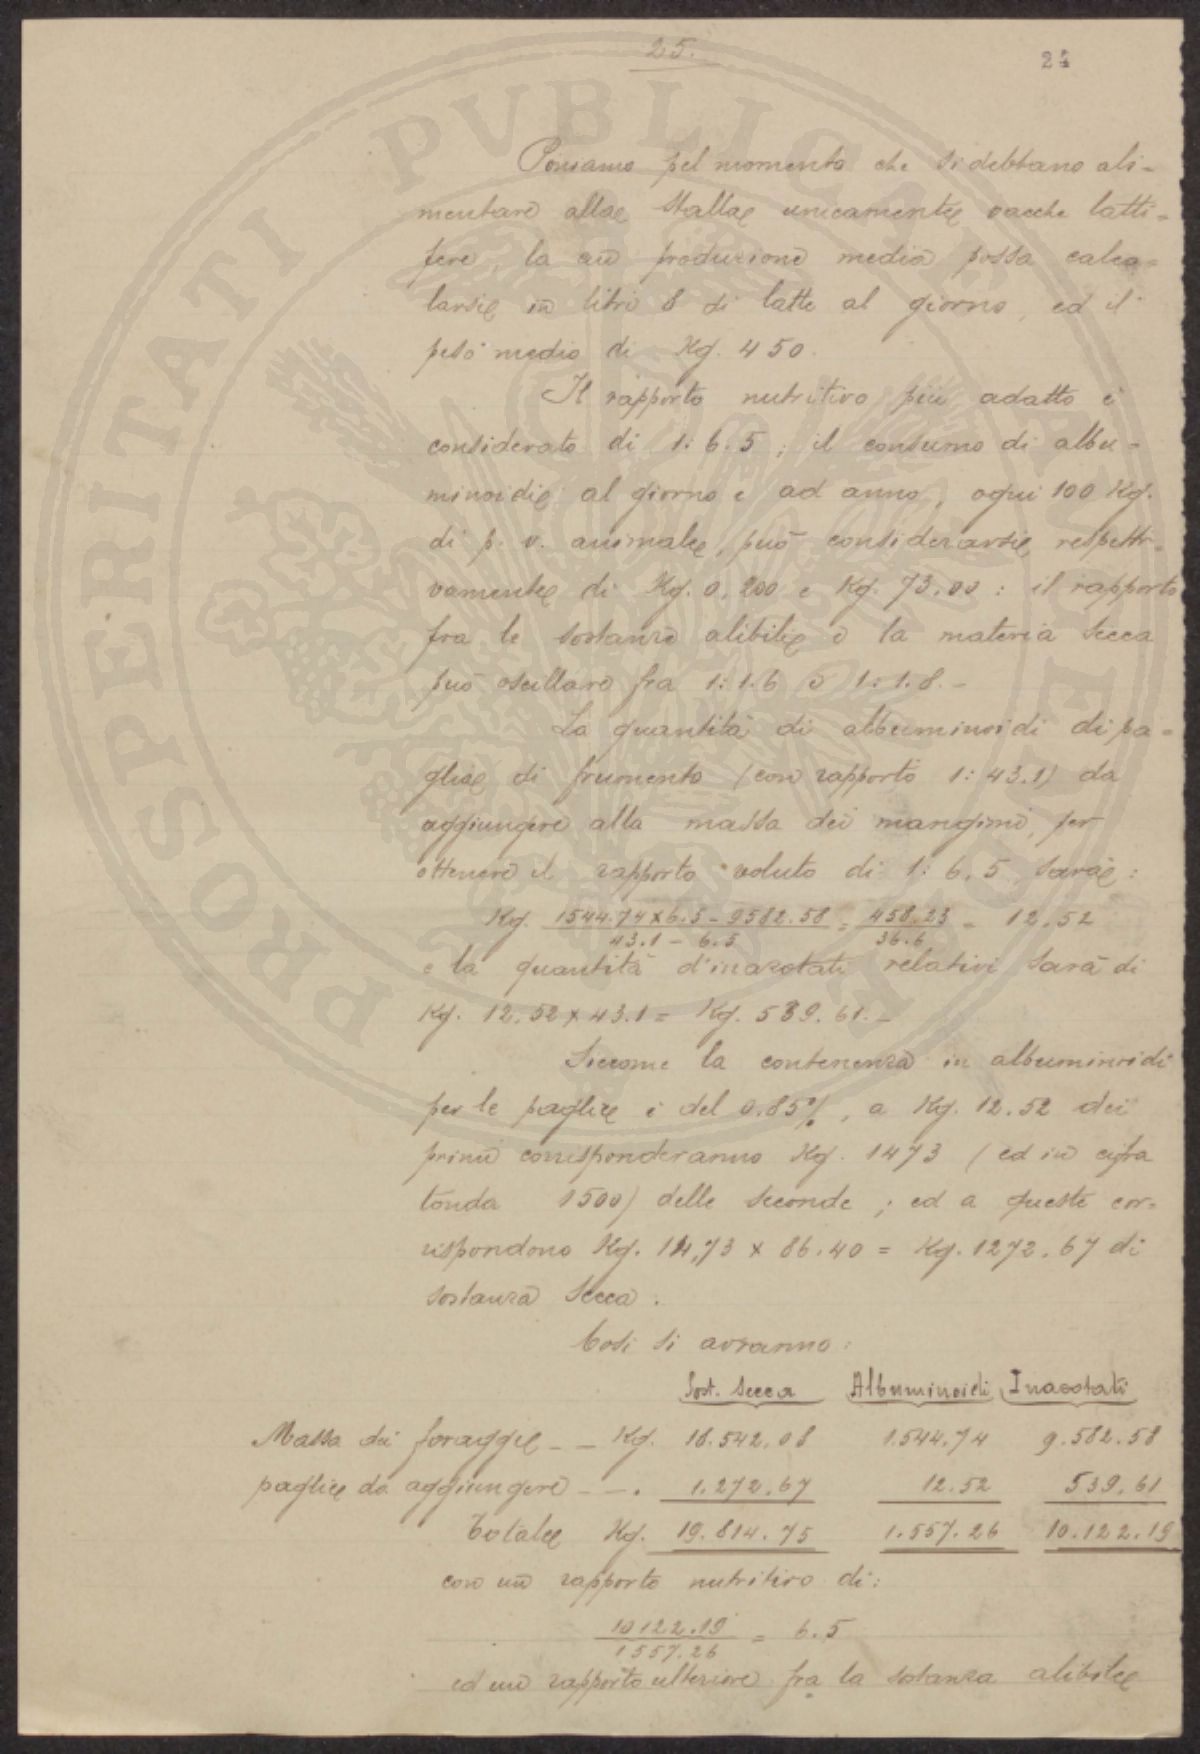 25.
24
Poniamo pel momento che si debbano ali-
mentare alla stalla unicamente vacche latti-
fere, la cui produzione media possa calco-
larsi in litri 8 di latte al giorno, ed il
peso medio di Kg. 450.
Il rapporto nutritivo più adatto è
considerato di 1:6.5; il consumo di albu-
minoidi al giorno e ad anno, ogni 100 Kg.
di p. v. animale, può considerarsi rispetti-
vamente di Kg. 0,200 e Kg. 73,00: il rapporto
fra le sostanze alibili e la materia secca
può oscillare fra 1:1.6 e 1:1.8.-
La quantità di albuminoidi di pa-
glia di frumento (con rapporto 1:43.1) da
aggiungere alla massa dei mangimi, per
ottenere il rapporto voluto di 1:6.5 sarà:
Kg. 1544.74x6.5-9582.58 / 43.1-6.5 = 458.23 / 36.6 = 12.52
e la quantità d'inazotati relativi sarà di
Kg. 12.52x43.1= Kg. 539.61.-
Siccome la contenenza in albuminoidi
per le paglie è del 0.85%, a Kg. 12.52 dei
primi corrisponderanno Kg. 1473 (ed in cifra
tonda 1500) delle seconde; ed a queste cor-
rispondono Kg. 14,73 x 86.40 = Kg. 1272.67 di
sostanza secca.
Così si avranno:
Sost. secca Albuminoidi Inazotati
Massa dei foraggi -- Kg. 18.542.08 1.544.74 9.582.58
paglie da aggiungere --. 1.272.67 12.52 539.61
Totale Kg. 19.814.75 1.557.26 10.122.19
con un rapporto nutritivo di:
10122.19 / 1557.26 = 6.5
ed un rapporto ulteriore fra la sostanza alibile
PROSPERITATI PVBLICAE